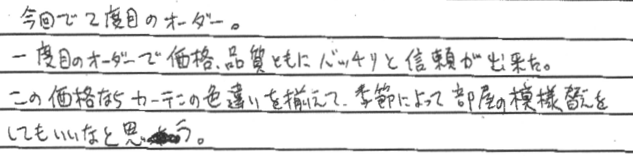 今回で2度目のオーダー。
一度目のオーダーで価格、品質ともにバッチリと信頼が出来た。
この価格ならカーテンの色違いを揃えて、季節によって部屋の模様替えを
してもいいなと思う。